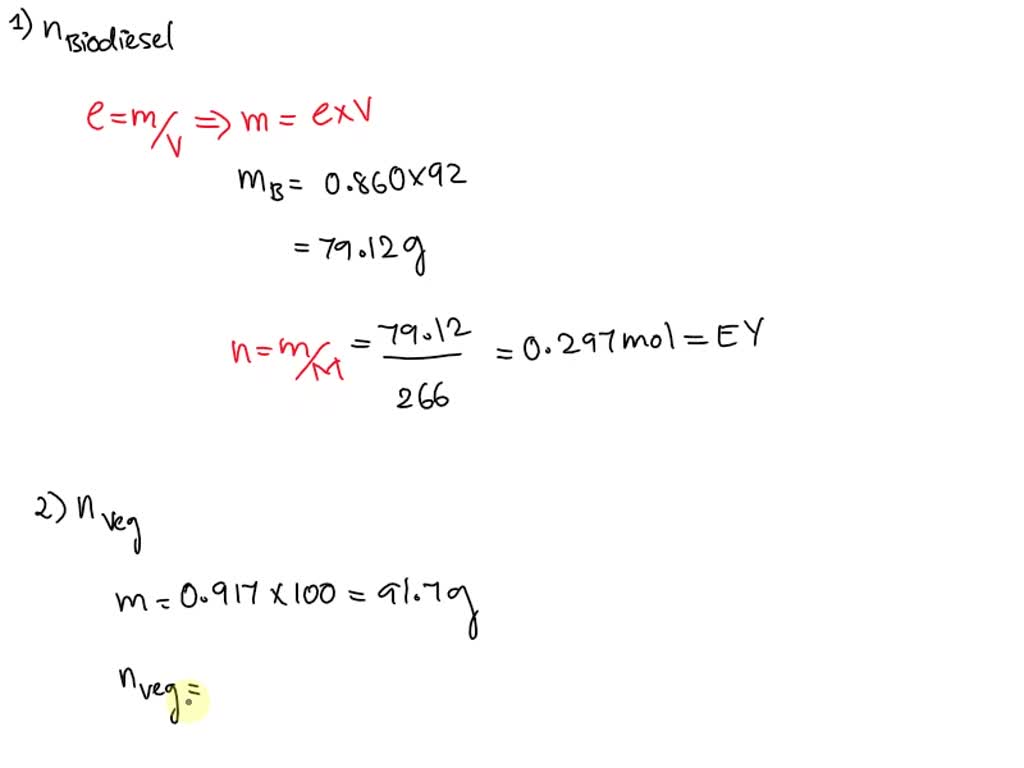 1) n Biodiesel
e = m/V ⇒ m = e x V
mB = 0.860 x 92
= 79.12 g
n = m/M = 79.12/266 = 0.297 mol = EY
2) n veg
m = 0.917 x 100 = 91.7 g
n veg =